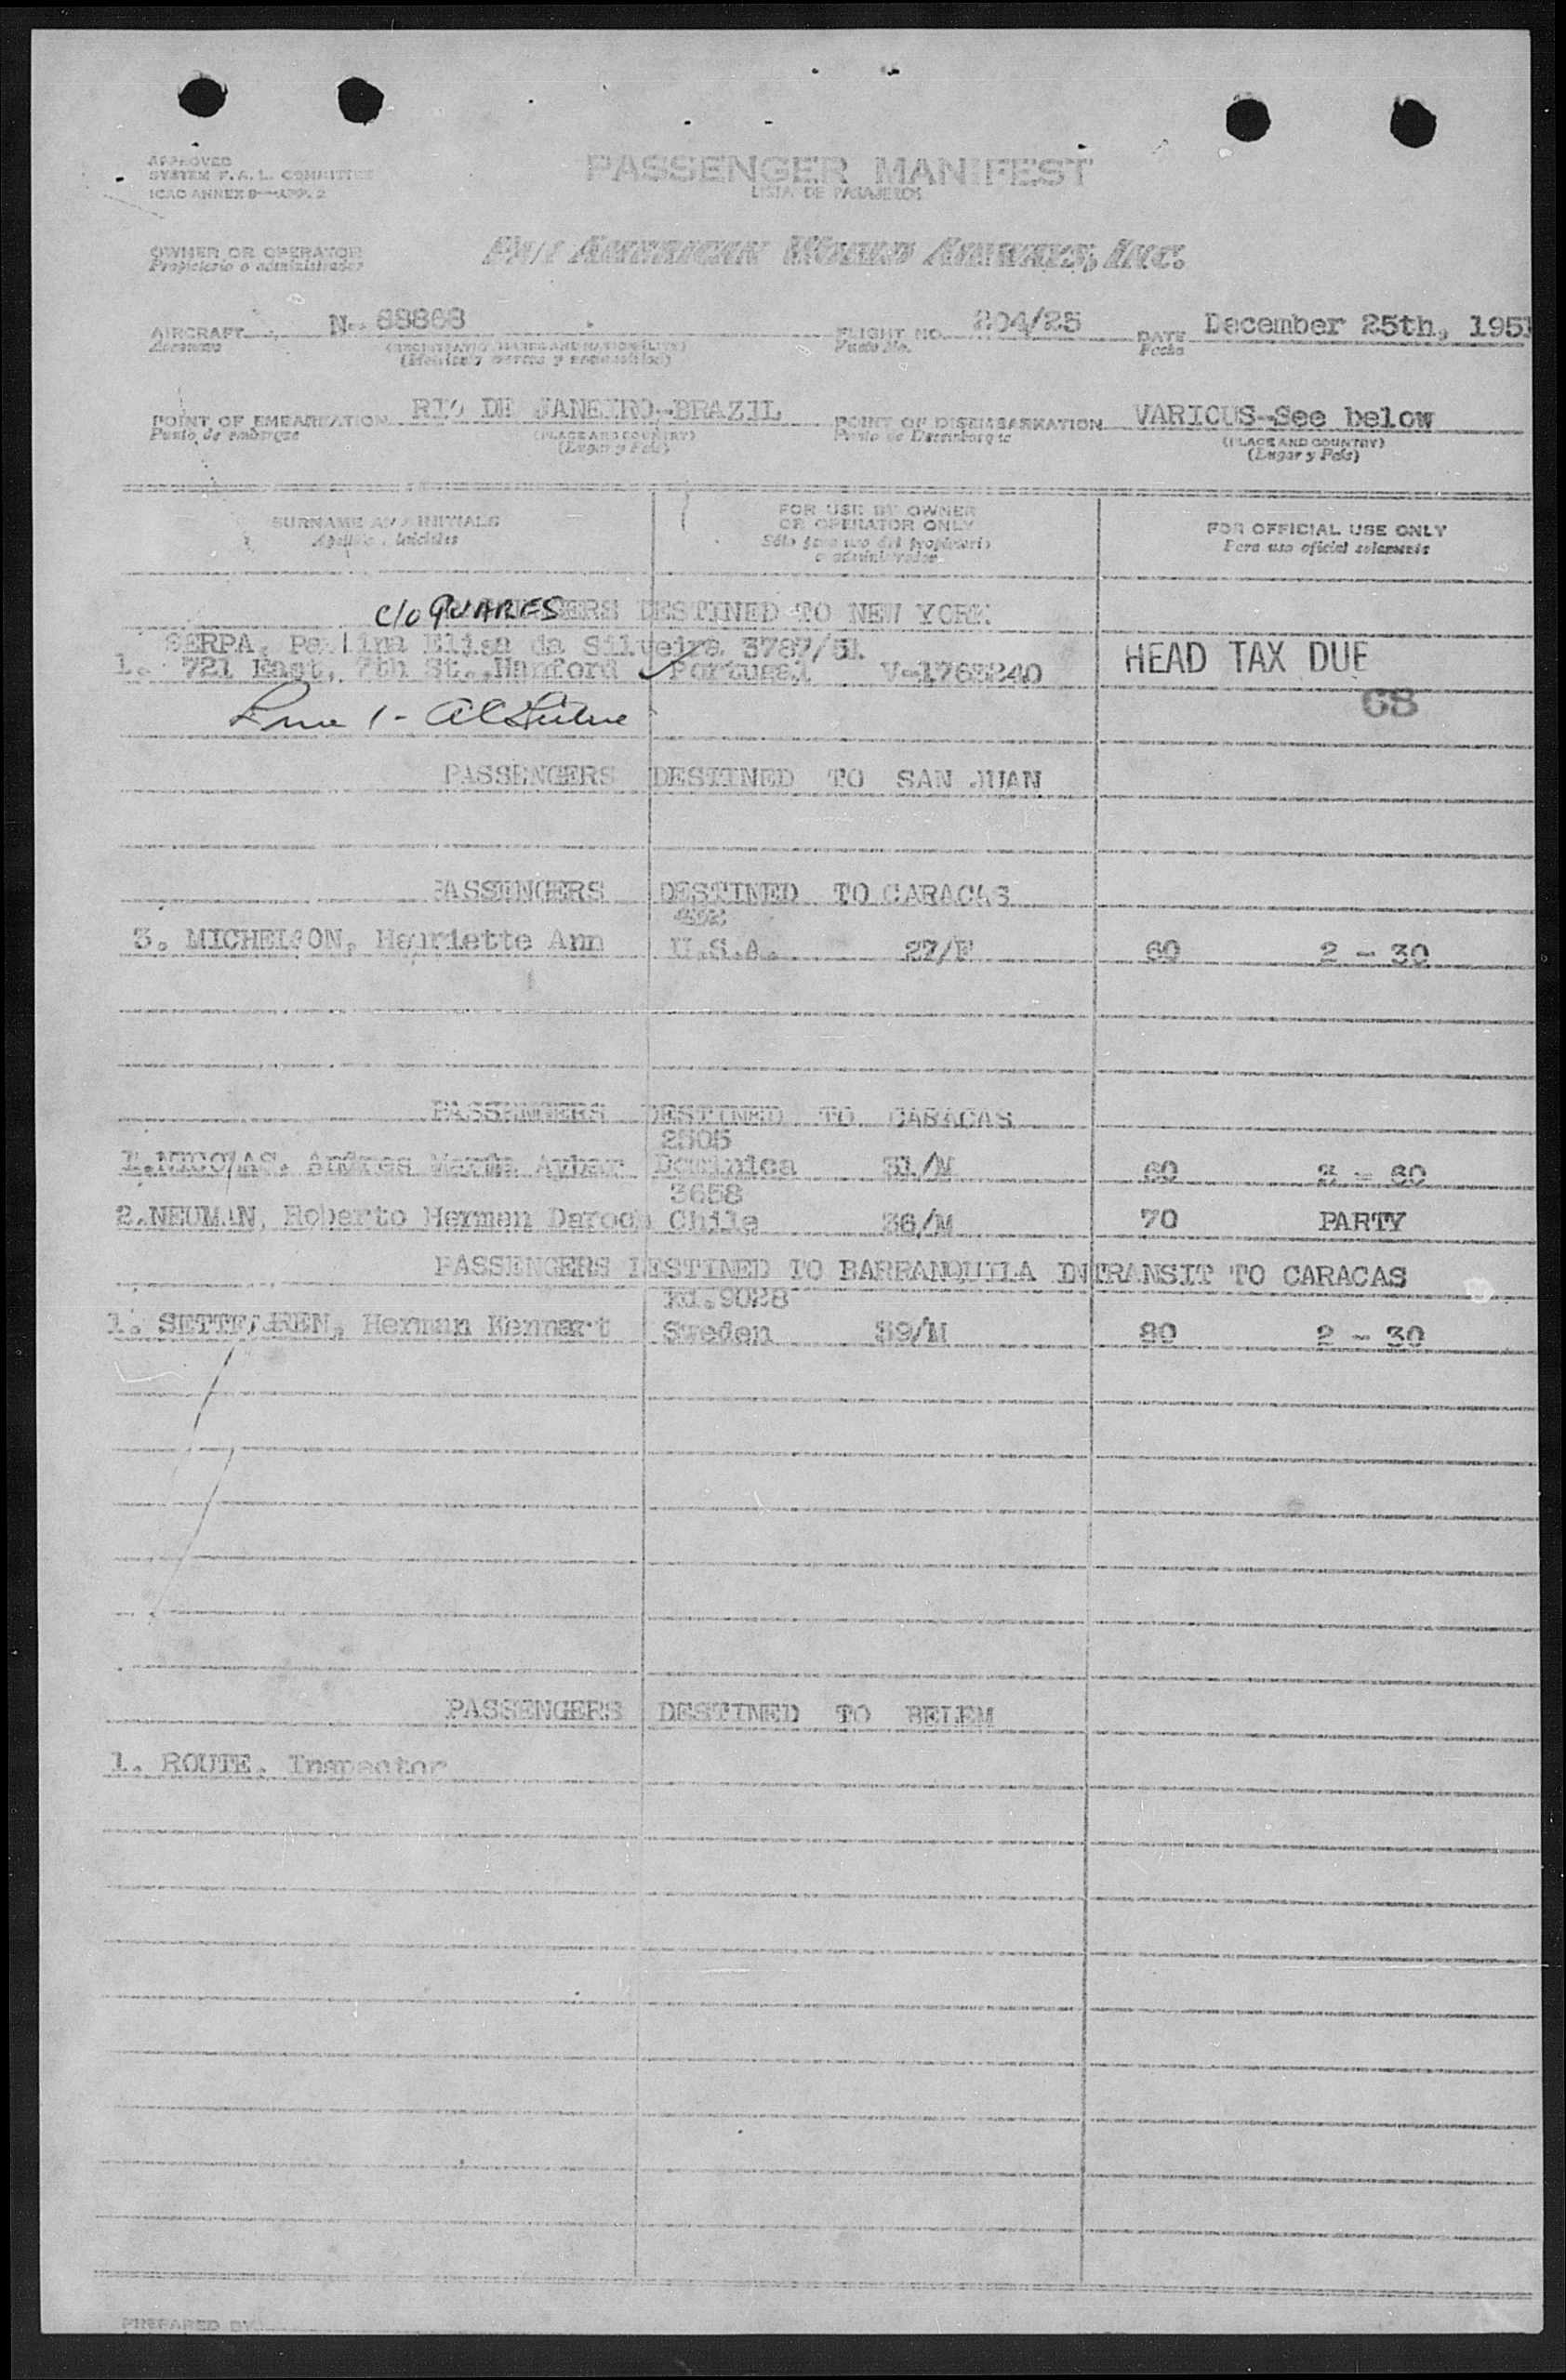 APPROVED
SYSTEM F.A.L. COMMITTEE
ICAO ANNEX 9—APP. 2
PASSENGER MANIFEST
LISTA DE PASAJEROS
OWNER OR OPERATOR
Propietario o administrador
PAN AMERICAN WORLD AIRWAYS, INC.
AIRCRAFT N. 88868 FLIGHT NO. 204/25 DATE December 25th, 1951
Aeronave (REGISTRATION MARKS AND NATIONALITY) Fecha
POINT OF EMBARKATION RIO DE JANEIRO-BRAZIL POINT OF DISEMBARKATION VARIOUS-See below
Punto de embarque (PLACE AND COUNTRY) Punto de Desembarque (PLACE AND COUNTRY)
(Lugar y País) (Lugar y País)
SURNAME AND INITIALS FOR USE BY OWNER OR OPERATOR ONLY FOR OFFICIAL USE ONLY
Apellido, iniciales Sólo para uso del propietario o administrador Para uso oficial solamente
c/o PASSENGERS DESTINED TO NEW YORK
SERPA, Paulina Elisa da Silveira 3787/51
1. 721 East, 7th St., Hanford Portugal V-1763240 HEAD TAX DUE
68
Line 1 -
PASSENGERS DESTINED TO SAN JUAN
PASSENGERS DESTINED TO CARACAS
3. MICHELSON, Henriette Ann U.S.A. 27/F 60 2 - 30
PASSENGERS DESTINED TO CARACAS
2505
1. NICOLAS, Andres Maria Aybar Dominica 31/M 60 3 - 60
3658
2. NEUMAN, Roberto Herman Daroch Chile 36/M 70 PARTY
PASSENGERS DESTINED TO BARRANQUILA INTRANSIT TO CARACAS
9028
1. Herman Sweden 59/M 80 2 - 30
PASSENGERS DESTINED TO BELEM
1. ROUTE, Inspector
PREPARED BY